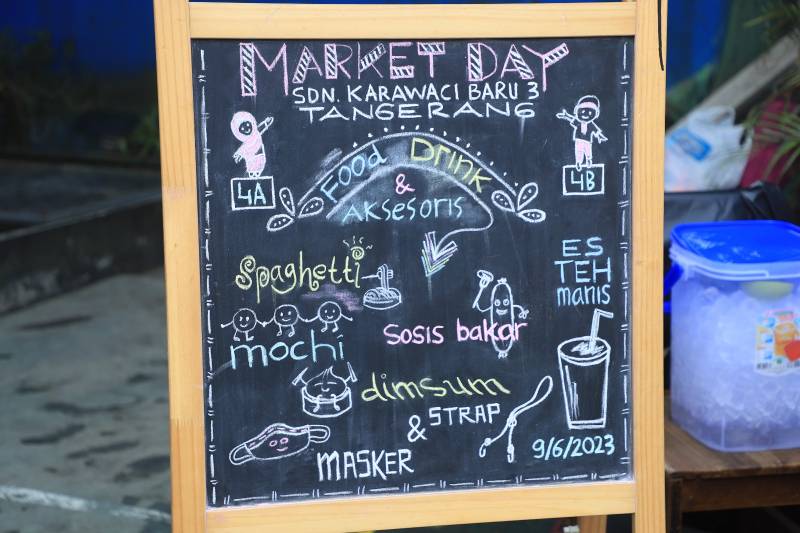 MARKET DAY
SDN. KARAWACI BARU 3
TANGERANG
4A
4B
Food Drink
&
Aksesoris
Spaghetti
ES
TEH
manis
Sosis bakar
mochi
dimsum
& STRAP
MASKER
9/6/2023